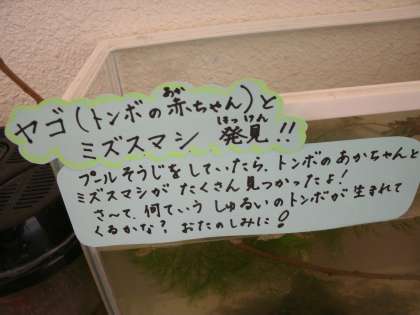 ヤゴ(トンボの赤ちゃん)と
ミズスマシ 発見!!
プールそうじをしていたら、トンボのあかちゃんと
ミズスマシがたくさん見つかったよ!
さ〜て、何ていうしゅるいのトンボが生まれて
くるかな?おたのしみに!